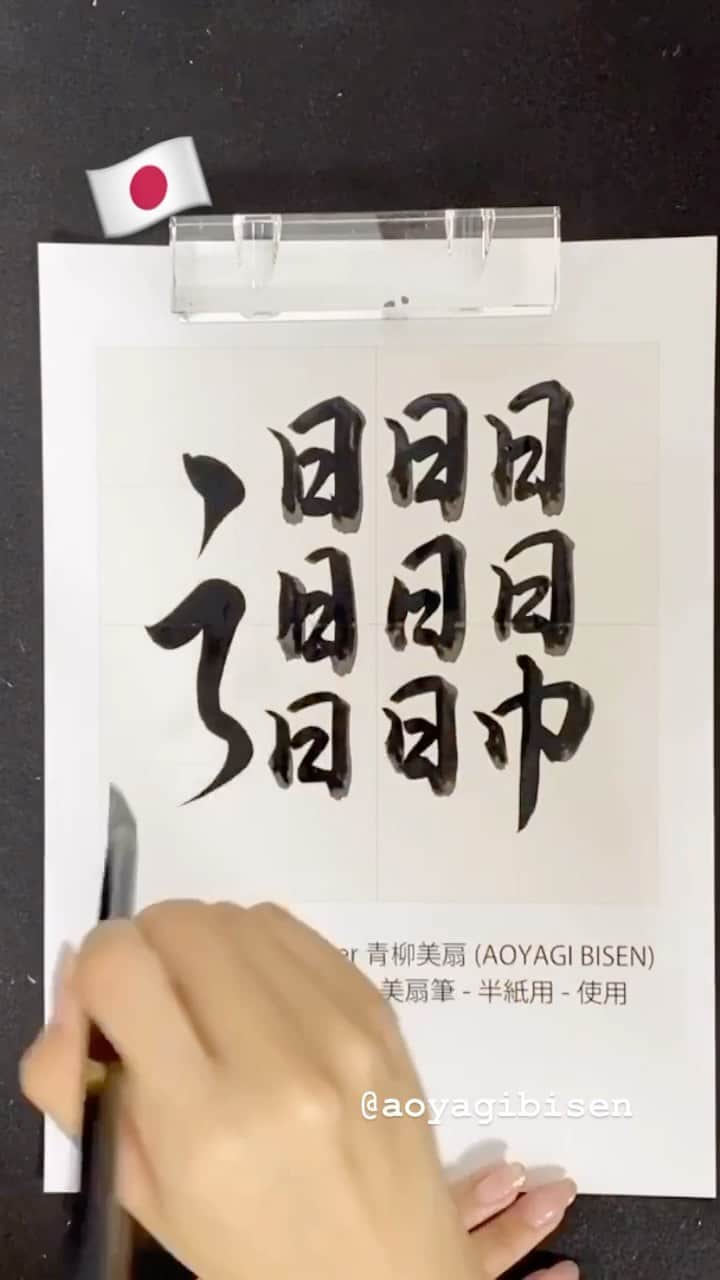 青柳美扇 (AOYAGI BISEN)
美扇筆 - 半紙用 - 使用
@aoyagibisen